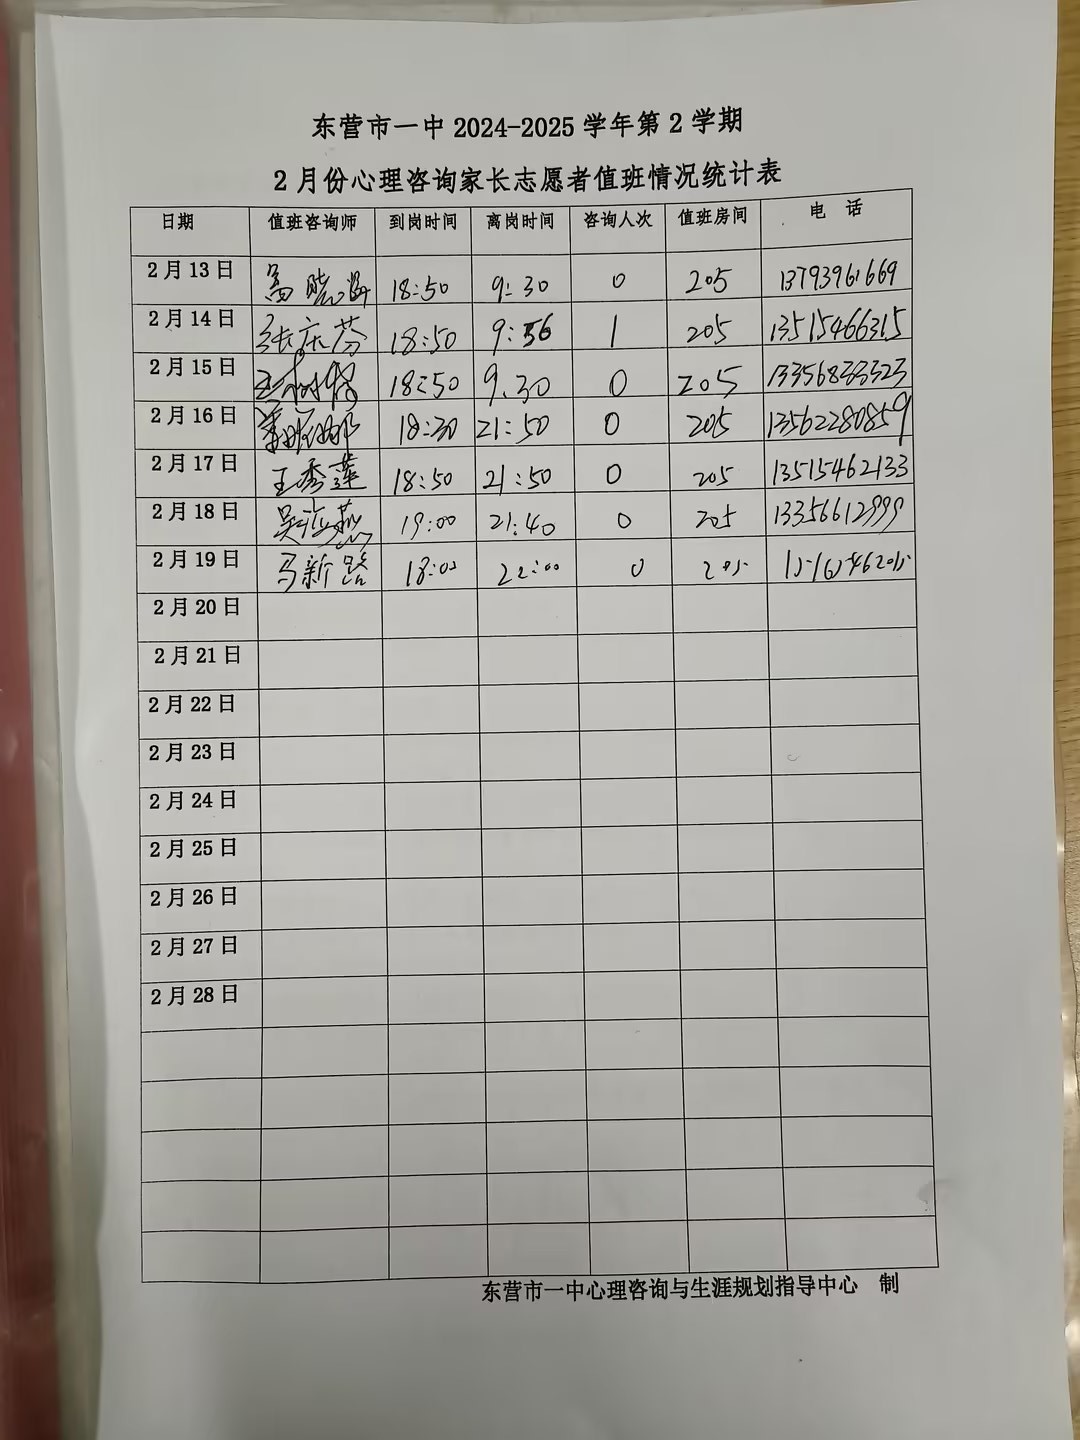 东营市一中 2024-2025 学年第 2 学期
2 月份心理咨询家长志愿者值班情况统计表
日期 值班咨询师 到岗时间 离岗时间 咨询人次 值班房间 电 话
2 月 13 日 18:50 9:30 0 205 13793961669
2 月 14 日 张庆芬 18:50 9:56 1 205 13515466315
2 月 15 日 18:50 9.30 0 205
2 月 16 日 18:30 21:50 0 205 13562280859
2 月 17 日 王秀莲 18:50 21:50 0 205 13515462133
2 月 18 日 19:00 21:40 0 205 13356612999
2 月 19 日 马新路 18:00 22:00 0 205
2 月 20 日
2 月 21 日
2 月 22 日
2 月 23 日
2 月 24 日
2 月 25 日
2 月 26 日
2 月 27 日
2 月 28 日
东营市一中心理咨询与生涯规划指导中心 制